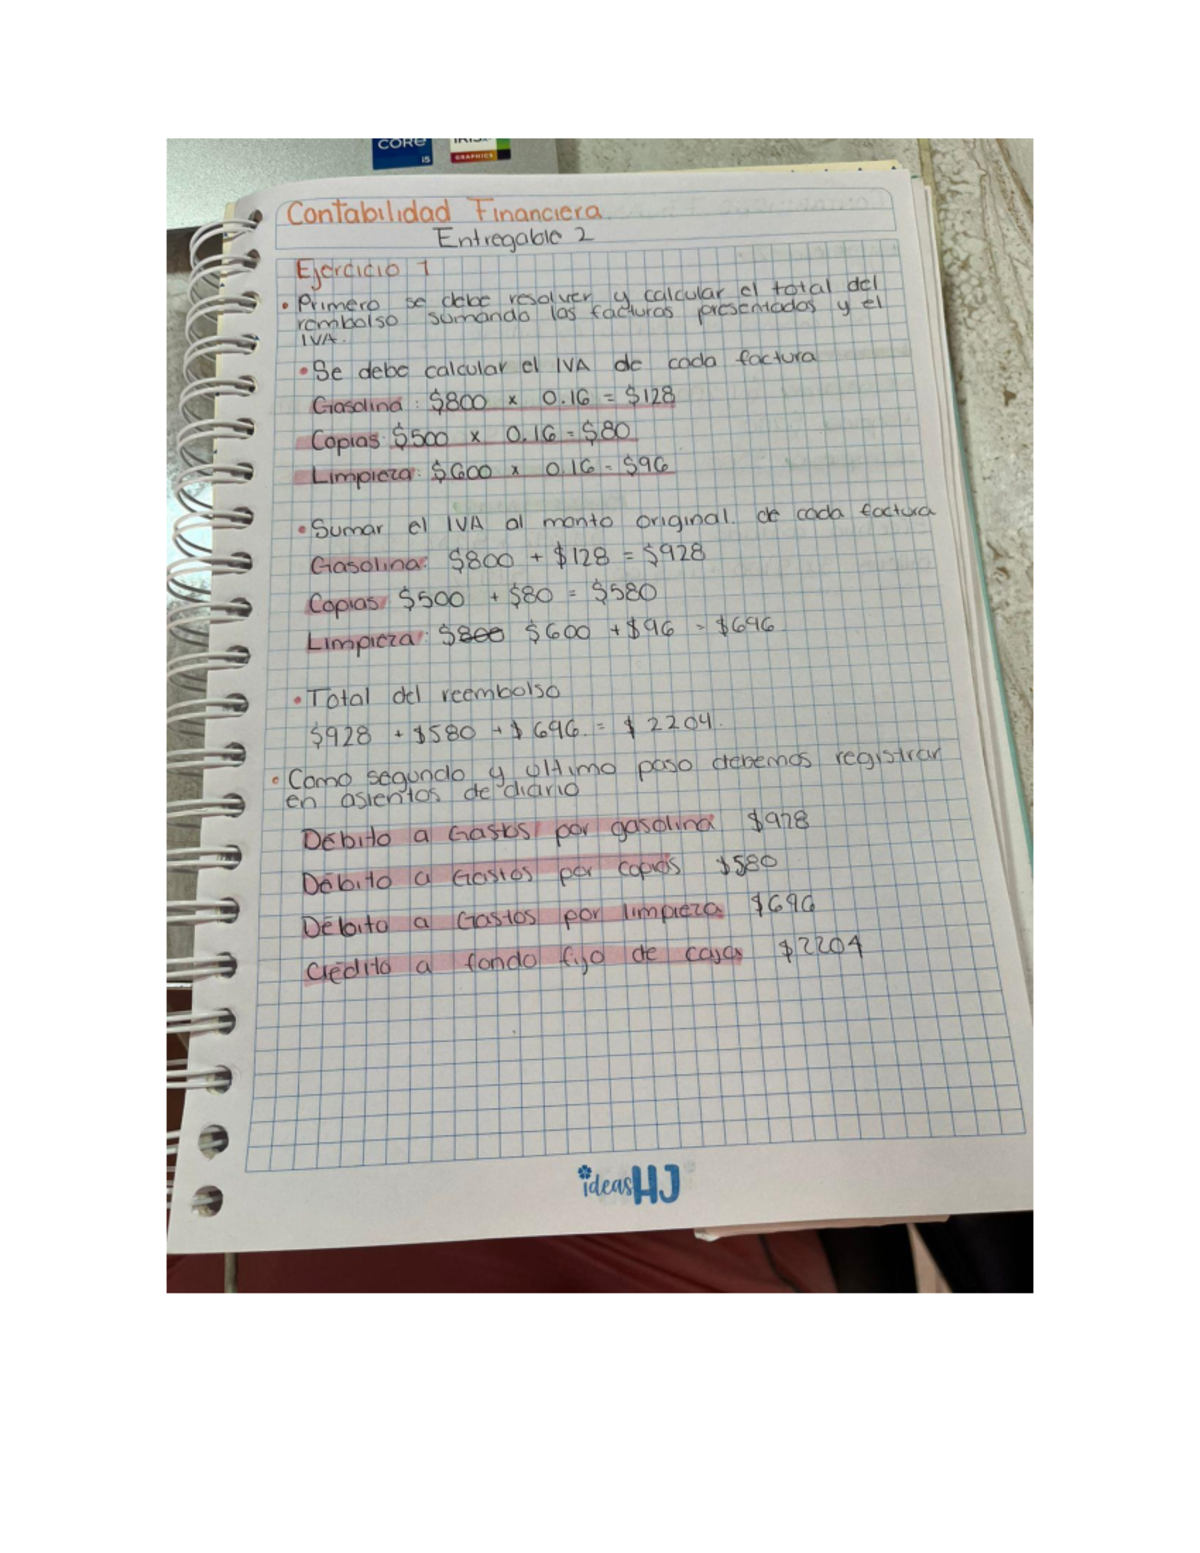 CORE
i5
GRAPHICS
Contabilidad Financiera
Entregable 2
Ejercicio 1
• Primero se debe resolver y calcular el total del
rembolso sumando las facturas presentadas y el
IVA.
• Se debe calcular el IVA de cada factura
Gasolina: $800 x 0.16 = $128
Copias: $500 x 0.16 = $80
Limpieza: $600 x 0.16 = $96
• Sumar el IVA al monto original de cada factura
Gasolina: $800 + $128 = $928
Copias: $500 + $80 = $580
Limpieza: $800 $600 + $96 = $696
• Total del reembolso
$928 + $580 + $696 = $2204.
• Como segundo y último paso debemos registrar
en asientos de diario
Débito a Gastos por gasolina $928
Débito a Gastos por copias $580
Débito a Gastos por limpieza $696
Crédito a fondo fijo de caja $2204
ideas HJ